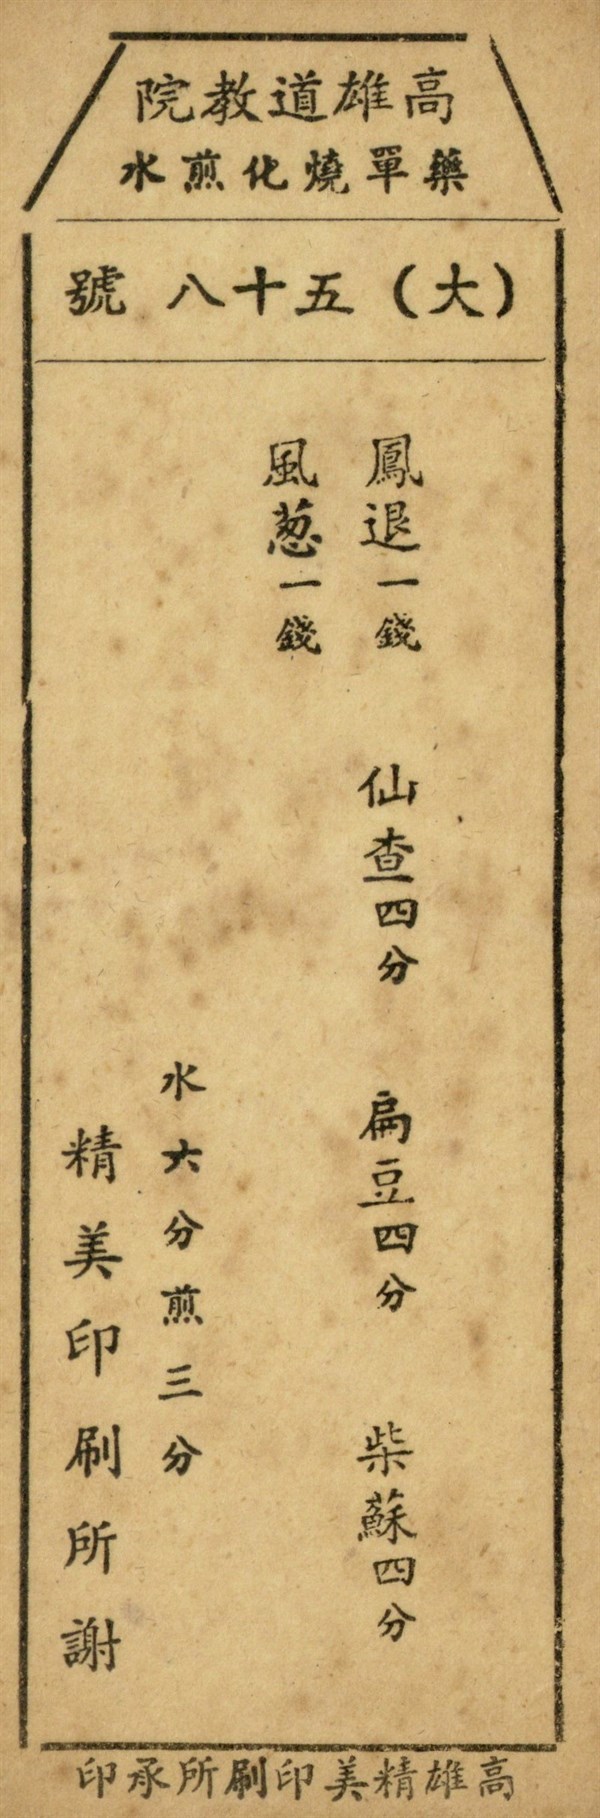 高雄道教院
藥單燒化煎水
(大)五十八號
鳳退一錢 仙查四分 扁豆四分 柴蘇四分
風葱一錢
水六分煎三分
精美印刷所謝
高雄精美印刷所承印